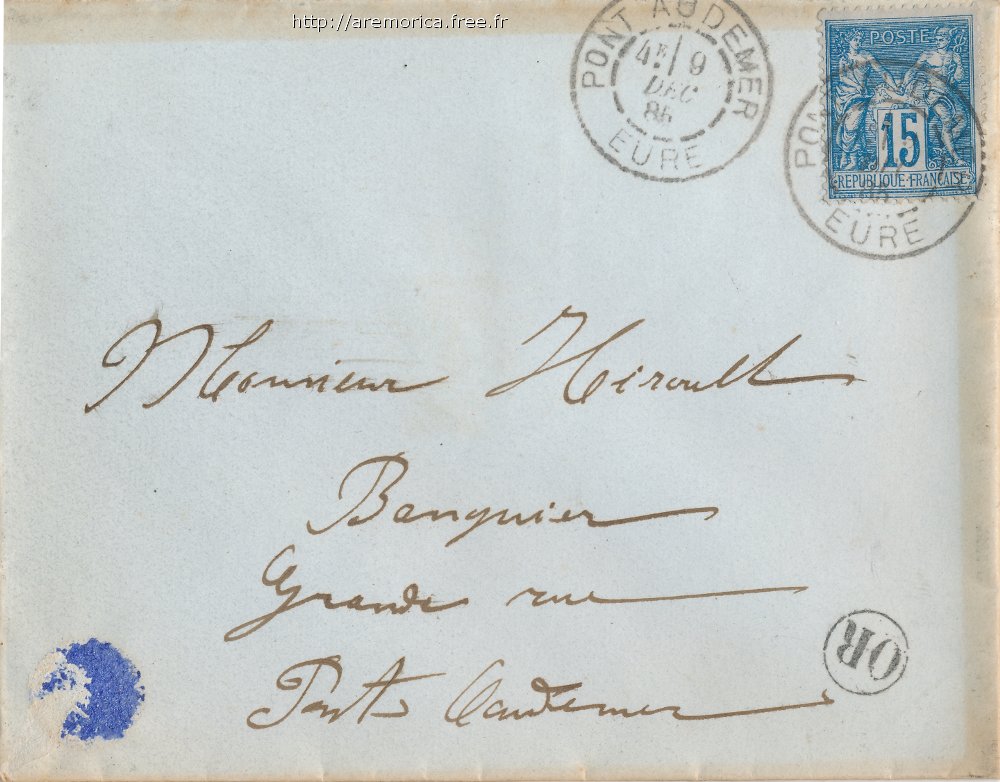 http://aremorica.free.fr
PONT AUDEMER
4E 9
DEC
86
EURE
POSTE
15
REPUBLIQUE FRANÇAISE
PON
EURE
Monsieur Héroult
Banquier
Grande rue
Pont Audemer
OR